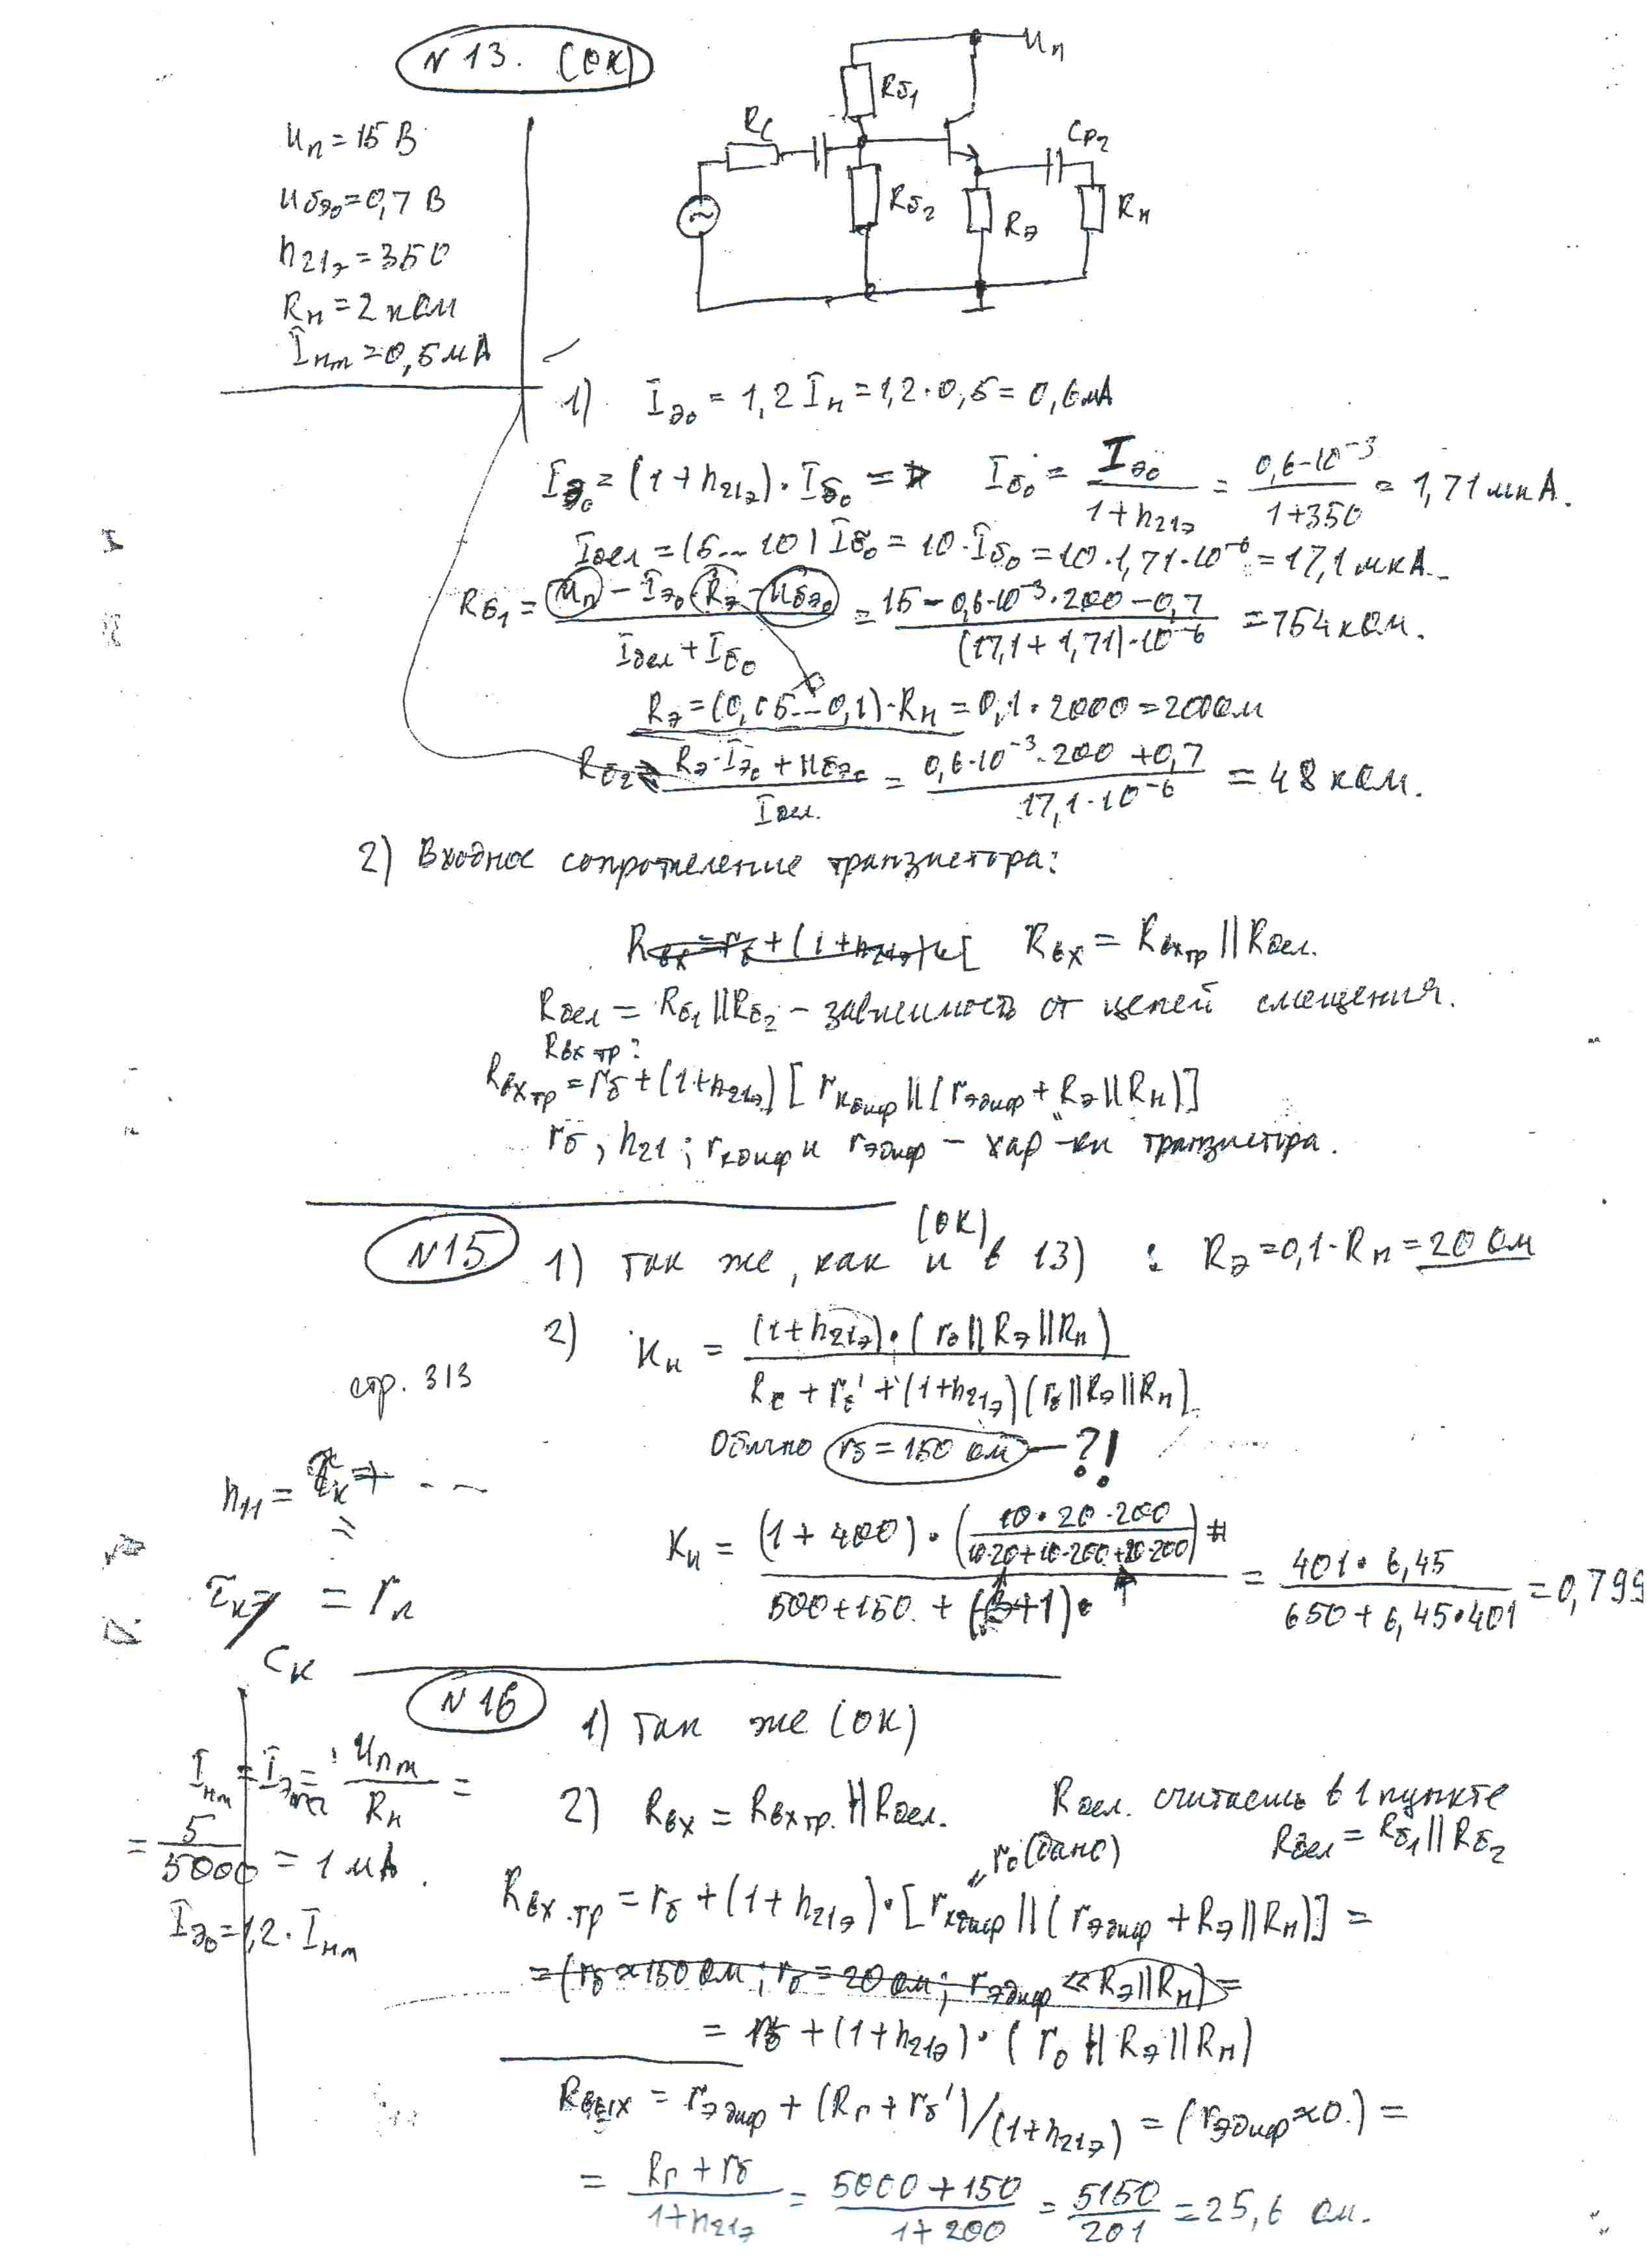 N 13. (ОК)
Uп
Rб1
Rс
Cр2
Rб2
Rэ
Rн
Uп = 15 В
Uбэ0 = 0,7 В
h21э = 350
Rн = 2 кОм
Iнm = 0,5 мА
1) Iэ0 = 1,2 Iн = 1,2·0,5 = 0,6 мА
Iэ0 = (1+h21э)·Iб0 => Iб0 = Iэ0/(1+h21э) = 0,6·10^-3/(1+350) = 1,71 мкА.
Iдел = (5...10) Iб0 = 10·Iб0 = 10·1,71·10^-6 = 17,1 мкА.
Rб1 = (Uп - Iэ0·Rэ - Uбэ0)/(Iдел + Iб0) = (15 - 0,6·10^-3·200 - 0,7)/((17,1+1,71)·10^-6) = 754 кОм.
Rэ = (0,05...0,1)·Rн = 0,1·2000 = 200 Ом
Rб2 = (Rэ·Iэ0 + Uбэ0)/Iдел. = (0,6·10^-3·200 + 0,7)/(17,1·10^-6) = 48 кОм.
2) Входное сопротивление транзистора:
Rвх = rб + (1+h21э)·[ Rвх = Rвх тр || Rдел.
Rдел = Rб1 || Rб2 - зависимость от цепей смещения.
Rвх тр:
Rвх тр = rб + (1+h21э) [rк диф || (rэ диф + Rэ || Rн)]
rб, h21; rк диф и rэ диф - хар-ки транзистора.
N15 1) так же, как и в 13) (ОК) : Rэ = 0,1·Rн = 20 Ом
2) Kн = (1+h21э)·(rо || Rэ || Rн)/(Rс + rб' + (1+h21э)(rб || Rэ || Rн)
стр. 313
Обычно rб = 150 Ом - ?!
h11 = ...
Kн = (1+400)·(10·20·200/(10·20+10·200+20·200))/(500+150. + (β+1)· = 401·6,45/(650+6,45·401) = 0,799
= rк
Cк
N 16 1) так же (ОК)
Iнm = Iэ = Uпm/Rн =
= 5/5000 = 1 мА.
Iэ0 = 1,2·Iнm
2) Rвх = Rвх тр. || Rдел. Rдел. считаешь в 1 пункте
Rдел = Rб1 || Rб2
" rо (дано)
Rвх.тр = rб + (1+h21э)·[rк диф || (rэ диф + Rэ || Rн)] =
= (rб ≈ 150 Ом; rб = 20 Ом; rэ диф << Rэ || Rн) =
= rб + (1+h21э)·(rо || Rэ || Rн)
Rвых = rэ диф + (Rг + rб')/(1+h21э) = (rэ диф ≈ 0.) =
= (Rг + rб)/(1+h21э) = (5000+150)/(1+200) = 5150/201 = 25,6 Ом.